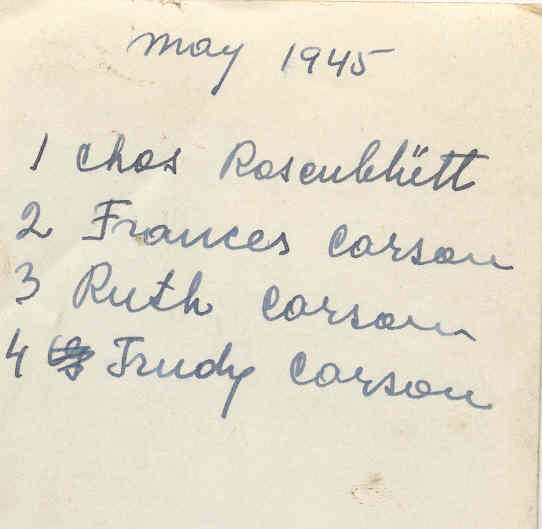 May 1945
1 Chas Rosenblütt
2 Frances Carson
3 Ruth Carson
4 Trudy Carson